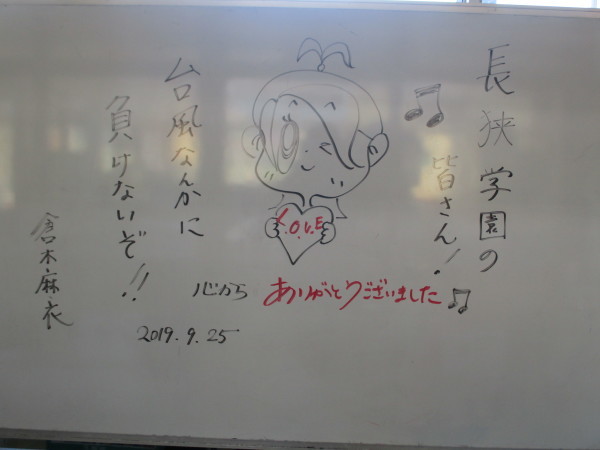 長狭学園の
皆さん!
L.O.V.E
台風なんかに
負けないぞ!!
心から ありがとうございました
2019.9.25
倉木麻衣